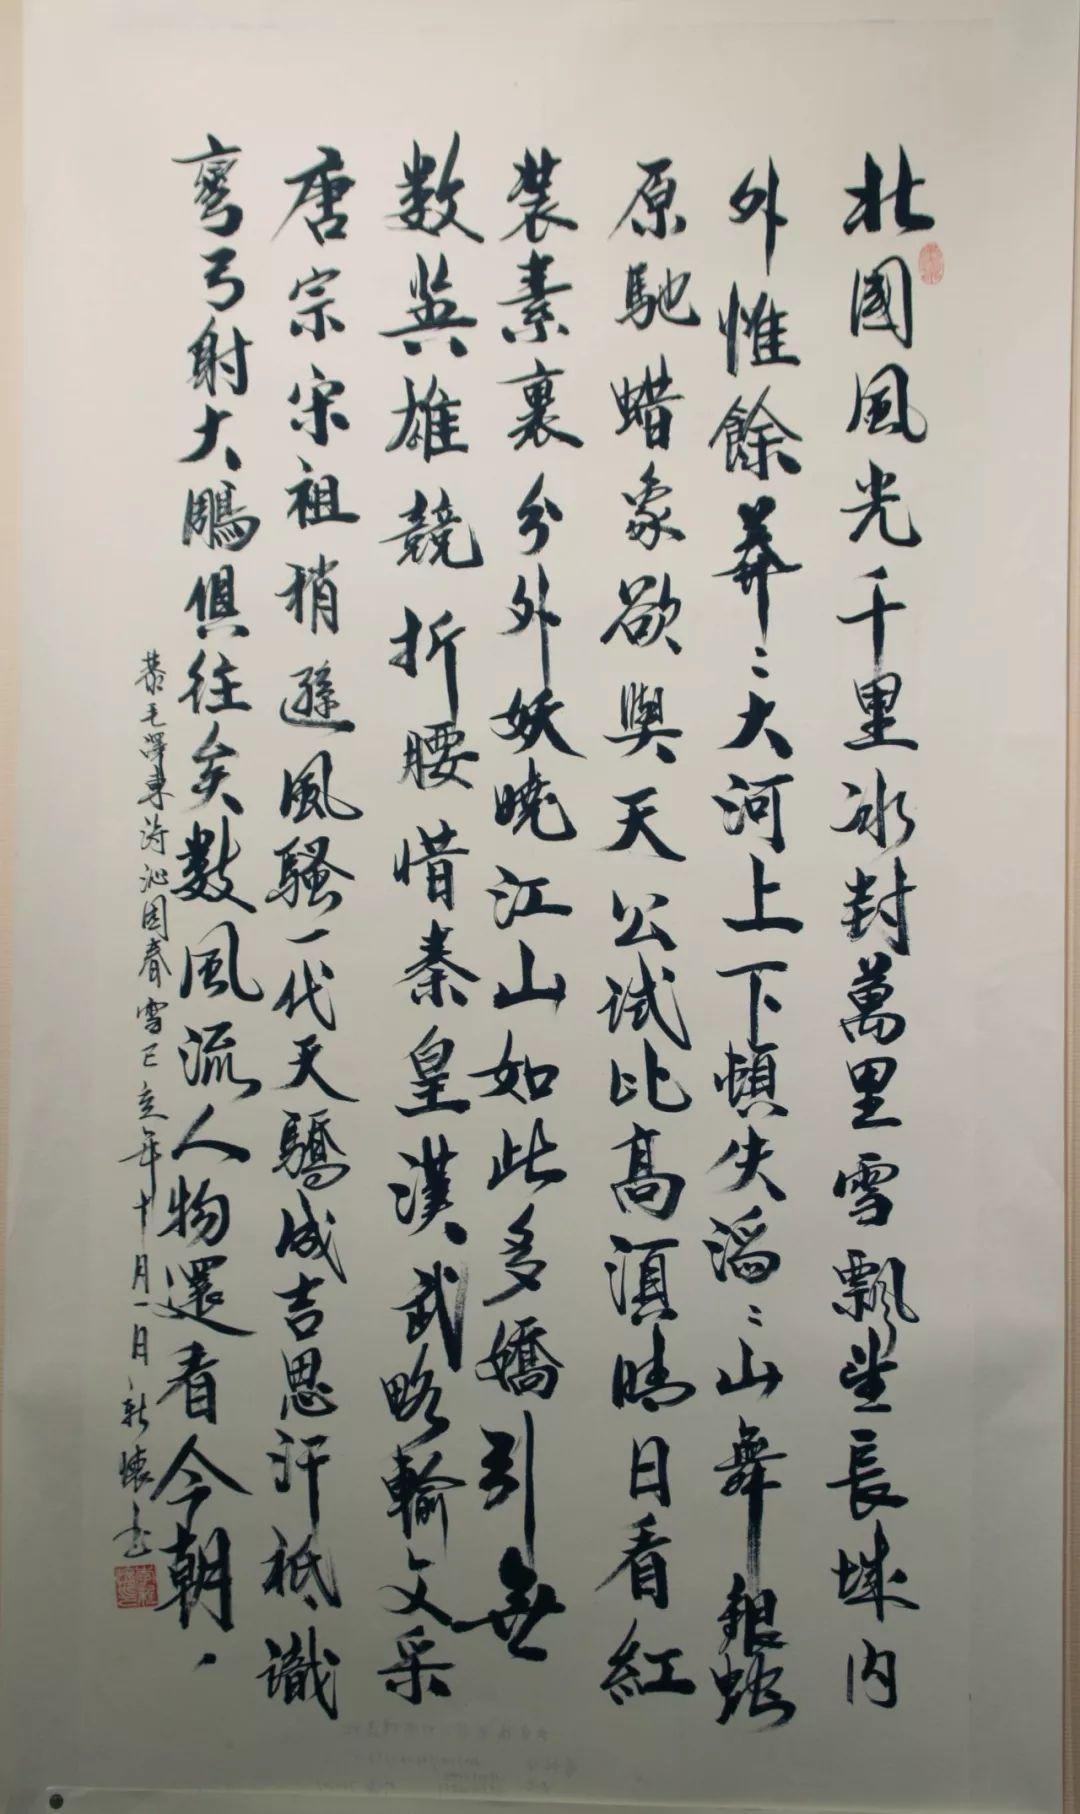 北國風光千里冰封萬里雪飄望長城内
外惟餘莽〻大河上下頓失滔〻山舞銀蛇
原馳蜡象欲與天公試比高須晴日看紅
裝素裹分外妖嬈江山如此多嬌引無
數英雄競折腰惜秦皇漢武略輸文采
唐宗宋祖稍遜風騷一代天驕成吉思汗祇識
彎弓射大鵰俱往矣數風流人物還看今朝
恭毛澤東詩沁園春雪己丑年十月一日新懷書